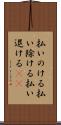 払いのける払
い除ける払い
退ける